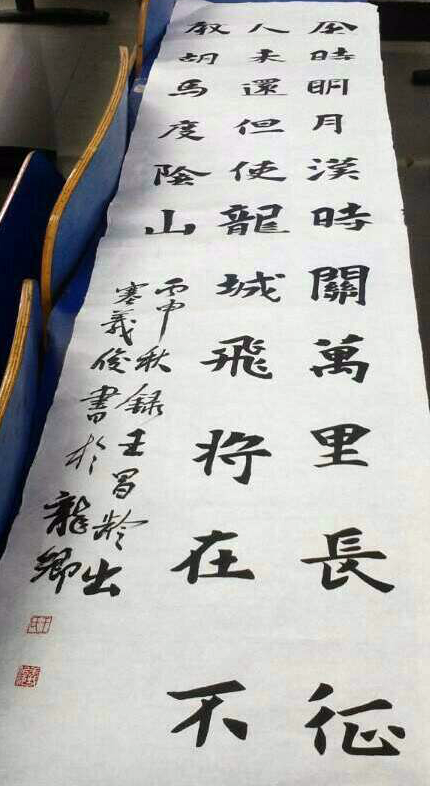 秦時明月漢時關萬里長征
人未還但使龍城飛将在不
教胡馬度陰山
丙申秋録王昌齡出
塞義俊書於龍鄉